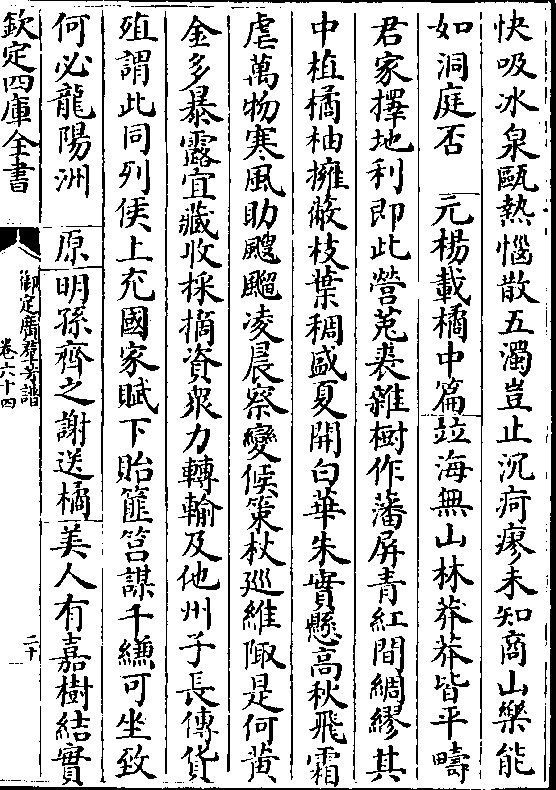 快吸冰泉甌熱惱散五濁豈止沉疴瘳未知商山樂能
如洞庭否　元楊載橘中篇竝海無山林莽莽皆平疇
君家擇地利即此營菟裘雜樹作藩屏青紅間綢繆其
中植橘柚擁蔽枝葉稠盛夏開白華朱實懸高秋飛霜
虐萬物寒風助颼飀凌晨察變候策杖巡維陬是何黄
金多暴露宜藏收採摘資衆力轉輸及他州子長傳貨
殖謂此同列侯上充國家賦下貽篚筥謀千縑可坐致
何必龍陽洲　原明孫齊之謝送橘美人有嘉樹結實
欽定四庫全書
御定廣羣芳譜
卷六十四
二十